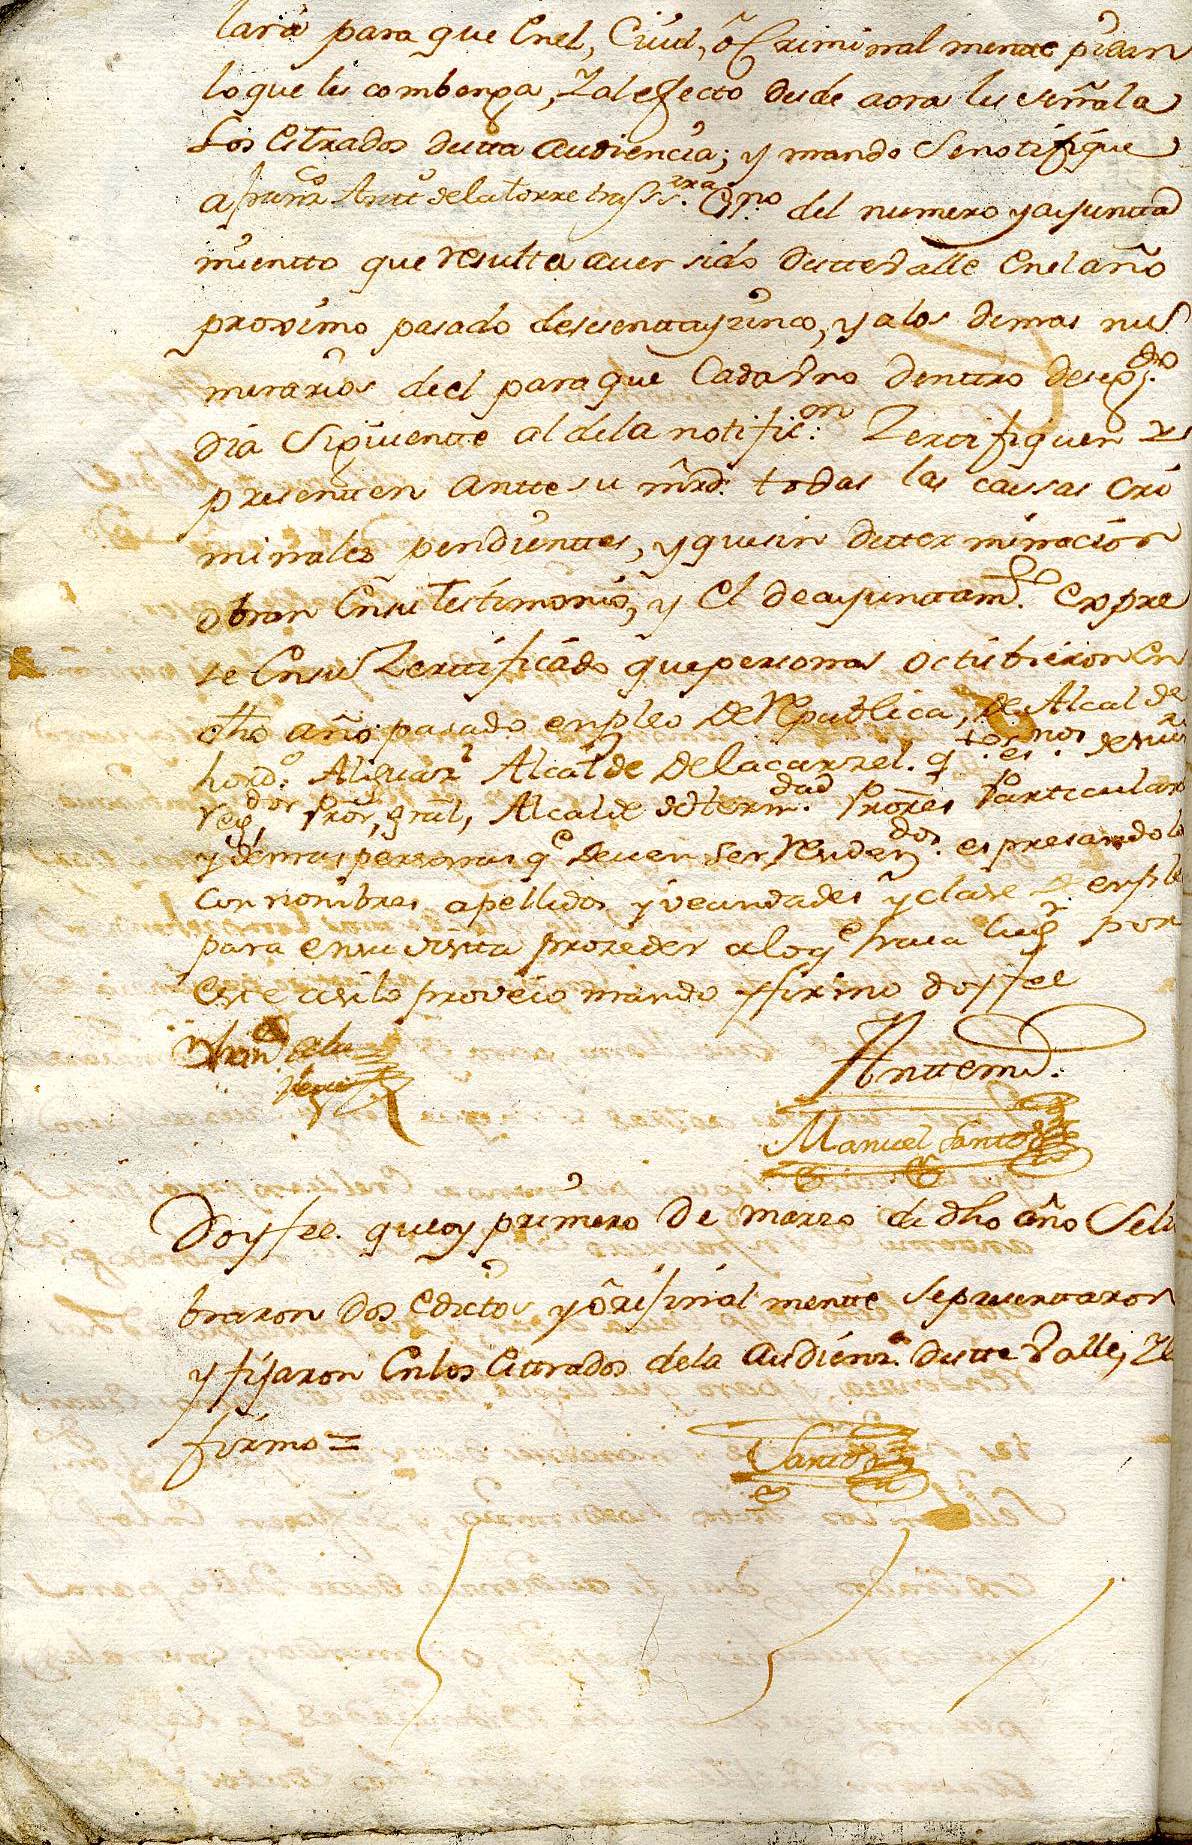 lará para que Enel, Ciuil, ô Criminal mente pidan
lo que les combenga, Zal efecto desde aora les señala
Los Estrados desta audiencia; y mando Senotifique
a fran.co Antt.o de la torre ess.no del numero y ayuntta
mientto que resulta auer sido deste Valle Enel año
proximo pasado desesentta y zinco, y a los demas nu
merarios deel para que Cada Vno denttro de seg.do
dia Siguientte al de la notific.on Zertifiquen y
presentten antte su mrd. todas las caussas cri
minales pendienttes, y que sin dettexminacion
obran Ensu Testimonio, y El de ayunttam.to Expre
se Ensu Zerttificado que personas octubieron En
dho año pasado enpleo de Republica, de Alcaldes
hord.s Alguazl Alcaide de la carzel.
Reg.dor Pror, gral, Alcalde de la herm.dad Prores Particulares
y demas personas q.e deuen ser Residen.dos espresando los
con nombres apellidos y vecindades y clase de enpleo
para en su vista prozeder a lo q.e haia lug.r por
este asi lo proveio mando y firmo doy fee
Anttemi.
Manuel Santos
Doy fee. que oy primero de marzo de dho año Seli
braron dos Edictos y orijinal mentte se presentaron
y fijaron En los Estrados de la Audienz.a deste Valle, Zlo
firmo =
Santos